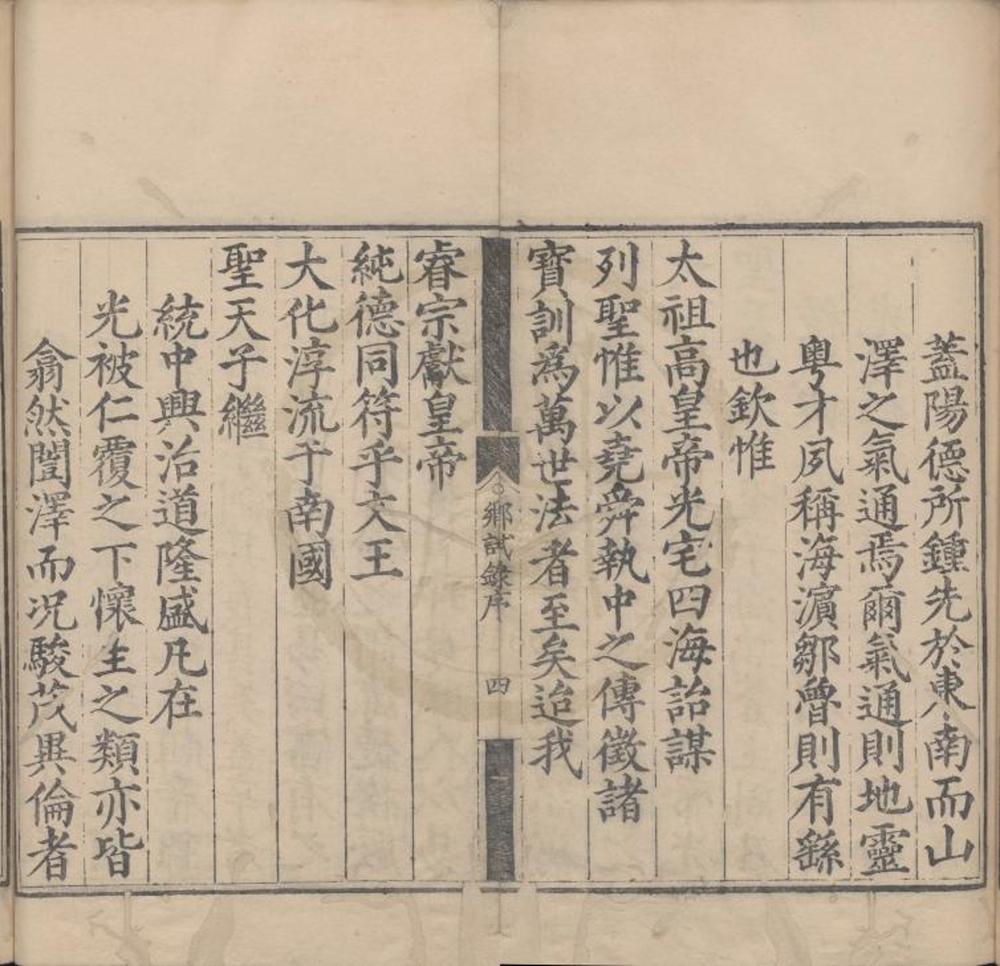 蓋陽德所鍾先於東南而山
澤之氣通焉爾氣通則地靈
粵才夙稱海濵鄒魯則有繇
也欽惟
太祖高皇帝光宅四海詒謀
列聖惟以堯舜執中之傳徵諸
寳訓爲萬世法者至矣迨我
鄉試錄序 四
睿宗獻皇帝
純德同符乎文王
大化淳流于南國
聖天子繼
統中興治道隆盛凡在
光被仁覆之下懷生之類亦皆
翕然闓澤而况駿茂異倫者